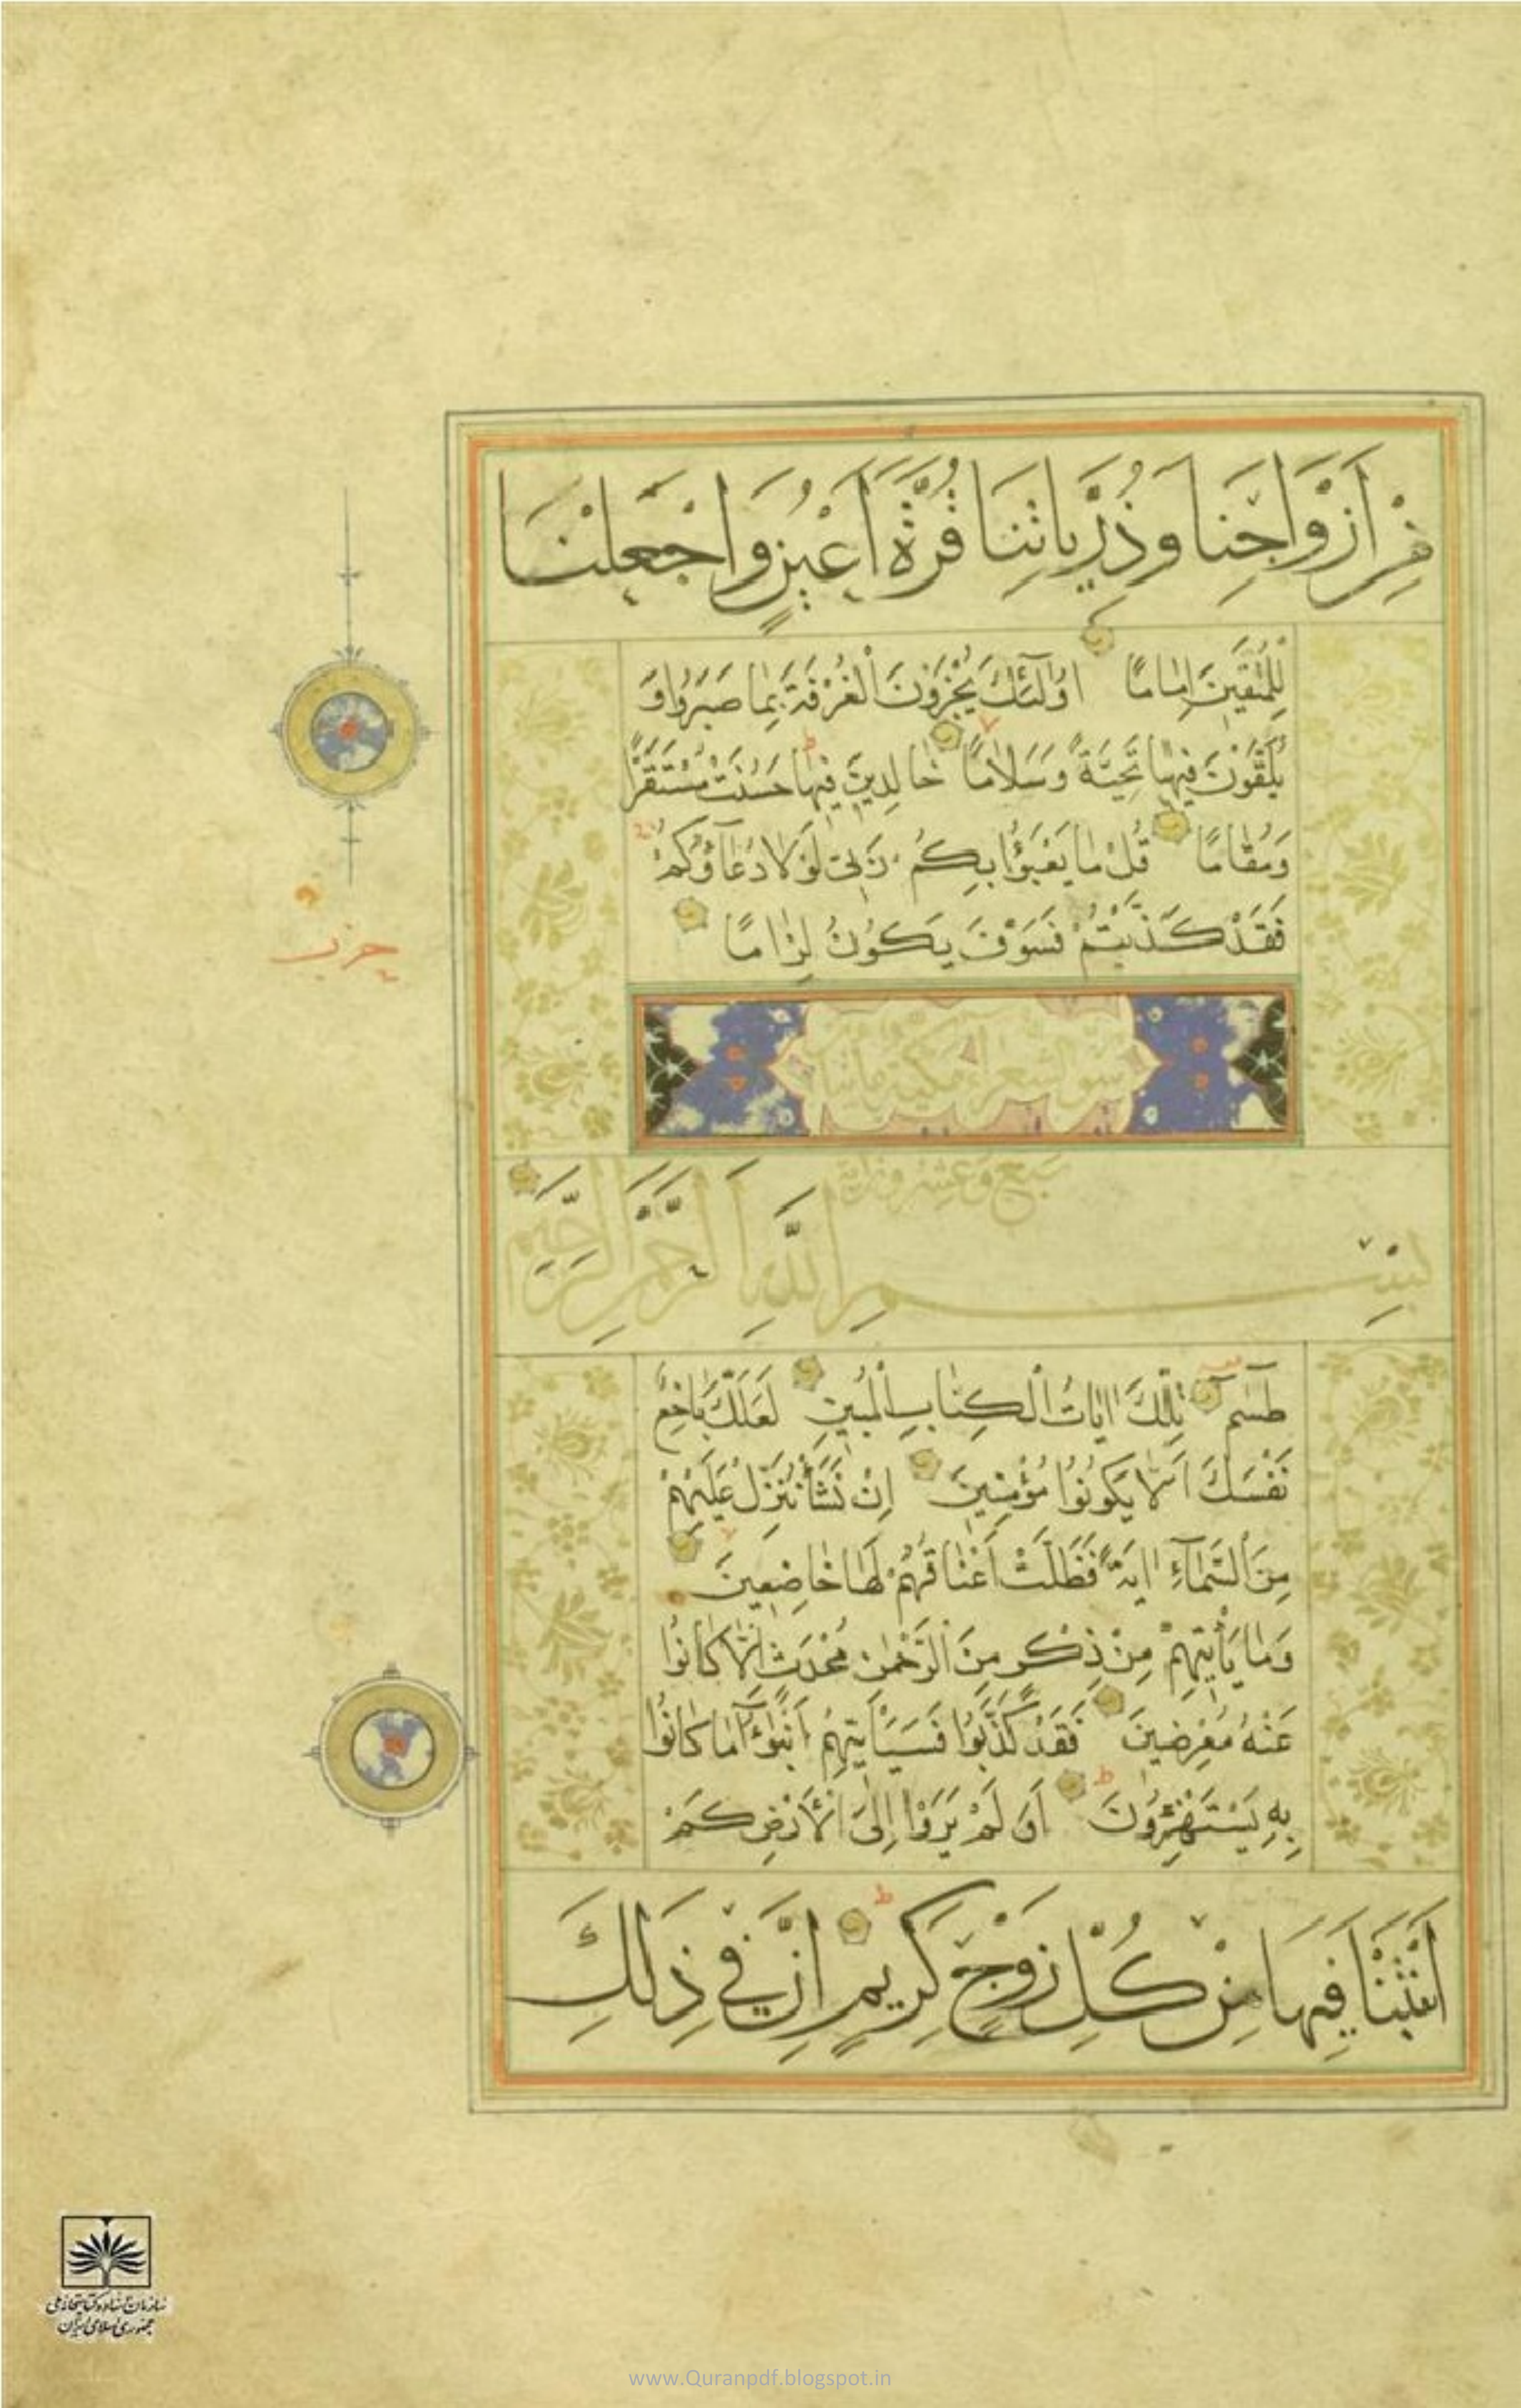 مِنْ اَزْوَاجِنَا وَذُرِّيَّاتِنَا قُرَّةَ اَعْيُنٍ وَاجْعَلْنَا
لِلْمُتَّقِينَ اِمَامًا اُولٰٓئِكَ يُجْزَوْنَ الْغُرْفَةَ بِمَا صَبَرُوا وَ
يُلَقَّوْنَ فِيهَا تَحِيَّةً وَسَلَامًا خَالِدِينَ فِيهَا حَسُنَتْ مُسْتَقَرًّا
وَمُقَامًا قُلْ مَا يَعْبَؤُا بِكُمْ رَبِّي لَوْلَا دُعَآؤُكُمْ
فَقَدْ كَذَّبْتُمْ فَسَوْفَ يَكُونُ لِزَامًا
حزب
سورة الشعراء مكية مائتا
سبع وعشرون آية
بِسْمِ اللَّهِ الرَّحْمٰنِ الرَّحِيمِ
طٰسٓمٓ تِلْكَ اٰيَاتُ الْكِتَابِ الْمُبِينِ لَعَلَّكَ بَاخِعٌ
نَفْسَكَ اَلَّا يَكُونُوا مُؤْمِنِينَ اِنْ نَشَأْ نُنَزِّلْ عَلَيْهِمْ
مِنَ السَّمَآءِ اٰيَةً فَظَلَّتْ اَعْنَاقُهُمْ لَهَا خَاضِعِينَ
وَمَا يَأْتِيهِمْ مِنْ ذِكْرٍ مِنَ الرَّحْمٰنِ مُحْدَثٍ اِلَّا كَانُوا
عَنْهُ مُعْرِضِينَ فَقَدْ كَذَّبُوا فَسَيَأْتِيهِمْ اَنْبٰٓؤُا مَا كَانُوا
بِهِ يَسْتَهْزِؤُنَ اَوَلَمْ يَرَوْا اِلَى الْاَرْضِ كَمْ
اَنْبَتْنَا فِيهَا مِنْ كُلِّ زَوْجٍ كَرِيمٍ اِنَّ فِي ذٰلِكَ
سازمان اسناد و کتابخانه ملی
جمهوری اسلامی ایران
www.Quranpdf.blogspot.in